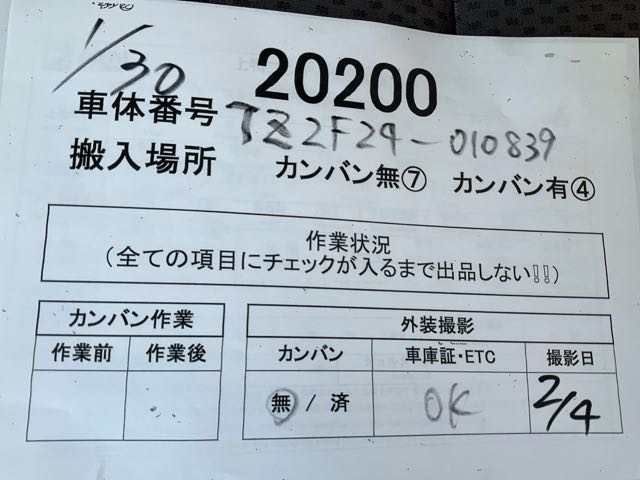 1/30
20200
車体番号 TZ2F24-010839
搬入場所 カンバン無⑦ カンバン有④
作業状況
(全ての項目にチェックが入るまで出品しない!!)
カンバン作業
作業前 作業後
外装撮影
カンバン 車庫証・ETC 撮影日
無 / 済 OK 2/4